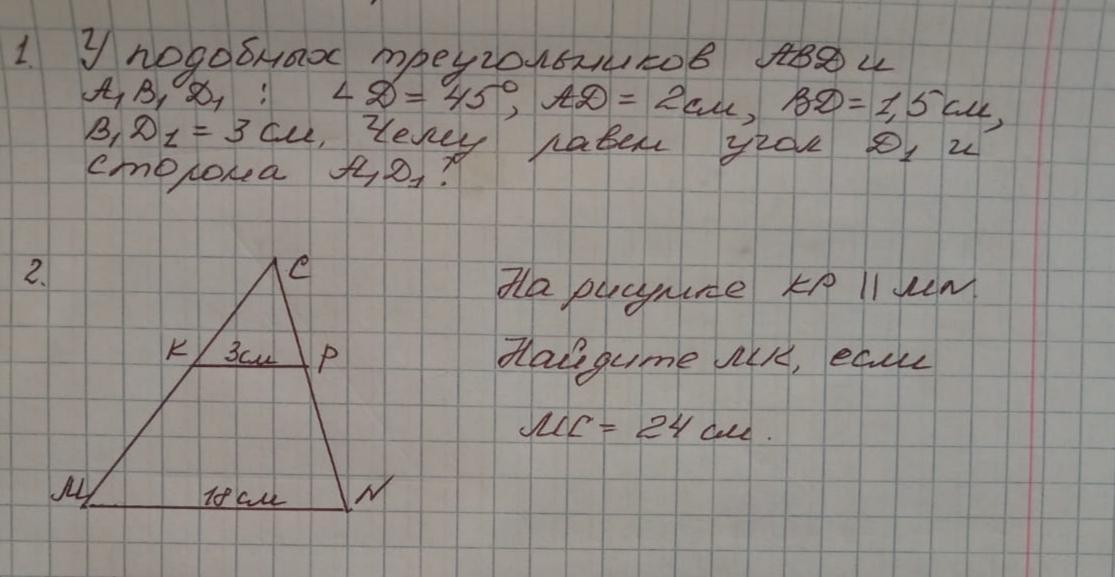 1. У подобных треугольников ABD и
A₁B₁D₁ : ∠D = 45°, AD = 2см, BD = 1,5 см,
B₁D₁ = 3 см. Чему равен угол D₁ и
сторона A₁D₁?
2.
C
На рисунке KP || MN.
K 3см P
Найдите MK, если
MC = 24 см.
M 18 см N